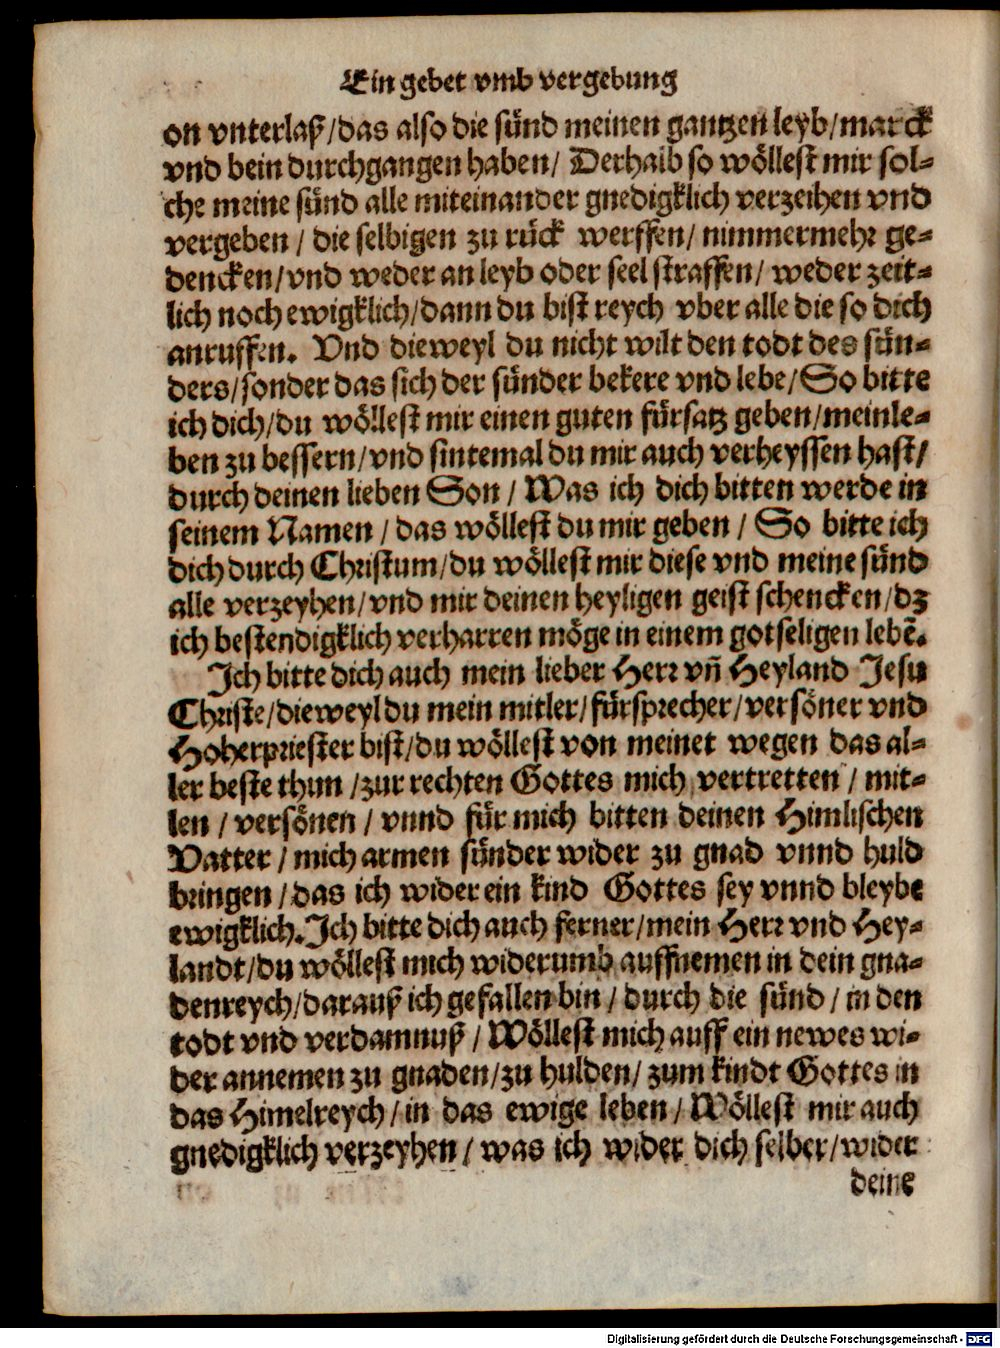 Ein gebet vmb vergebung
on vnterlaß/das also die sünd meinen gantzen leyb/marck
vnd bein durchgangen haben/ Derhalb so wöllest mir sol-
che meine sünd alle miteinander gnedigklich verzeihen vnd
vergeben / die selbigen zu rück werffen/ nimmermehr ge-
dencken/vnd weder an leyb oder seel straffen/ weder zeit-
lich noch ewigklich/dann du bist reych vber alle die so dich
anruffen. Vnd dieweyl du nicht wilt den todt des sün-
ders/sonder das sich der sünder bekere vnd lebe/So bitte
ich dich/du wöllest mir einen guten fürsatz geben/mein le-
ben zu bessern/vnd sintemal du mir auch verheyssen hast/
durch deinen lieben Son / Was ich dich bitten werde in
seinem Namen / das wöllest du mir geben / So bitte ich
dich durch Christum/du wöllest mir diese vnd meine sünd
alle verzeyhen/vnd mir deinen heyligen geist schencken/dz
ich bestendigklich verharren möge in einem gotseligen lebẽ.
Ich bitte dich auch mein lieber Herr vñ Heyland Jesu
Christe/dieweyl du mein mitler/fürsprecher/versöner vnd
Hoherpriester bist/du wöllest von meinet wegen das al-
ler beste thun /zur rechten Gottes mich vertretten / mit-
len / versönen / vnnd für mich bitten deinen Himlischen
Vatter / mich armen sünder wider zu gnad vnnd huld
bringen /das ich wider ein kind Gottes sey vnnd bleybe
ewigklich.Ich bitte dich auch ferner/mein Herr vnd Hey-
landt/du wöllest mich widerumb auffnemen in dein gna-
denreych/darauß ich gefallen bin / durch die sünd / in den
todt vnd verdamnuß / Wöllest mich auff ein newes wi-
der annemen zu gnaden/zu hulden/ zum kindt Gottes in
das Himelreych/in das ewige leben / Wöllest mir auch
gnedigklich verzeyhen / was ich wider dich selber/wider
deine
Digitalisierung gefördert durch die Deutsche Forschungsgemeinschaft - DFG